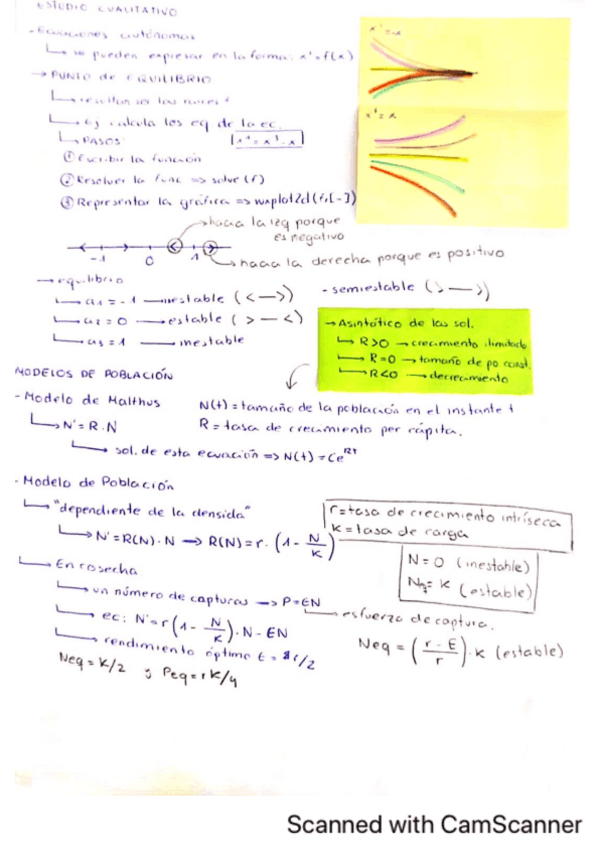 ESTUDIO CUALITATIVO
- Ecuaciones autónomas
se pueden expresar en la forma: x' = f(x)
→ PUNTO de EQUILIBRIO
resultan ser las raíces
Ej calcula los eq de la ec.
PASOS: x' = x³ - x
① Escribir la función
② Resolver la func => solve (f)
③ Representar la gráfica => wxplot2d (f,[-])
hacia la izq porque
es negativo
-1 0 1
hacia la derecha porque es positivo
→ equilibrio
a1 = -1 — inestable (< — >)
a2 = 0 — estable (> — <)
a3 = 1 — inestable
- semiestable (> — >)
x' = -x
x' = x
→ Asintótico de las sol.
R>0 → crecimiento ilimitado
R=0 → tamaño de po const.
R<0 → decrecimiento
MODELOS DE POBLACIÓN
- Modelo de Malthus
N' = R.N
N(t) = tamaño de la población en el instante t
R = tasa de crecimiento per cápita.
sol. de esta ecuación => N(t) = Ce^Rt
- Modelo de Población
"dependiente de la densida"
N' = R(N)·N → R(N) = r·(1 - N/K)
r = tasa de crecimiento intríseca
K = tasa de carga
N = 0 (inestable)
= K (estable)
En cosecha
un número de capturas → P = EN
esfuerzo de captura.
ec: N' = r(1 - N/K)·N - EN
Neq = (r - E/r)·K (estable)
rendimiento óptimo E = r/2
Neq = K/2 y Peq = rK/4
Scanned with CamScanner